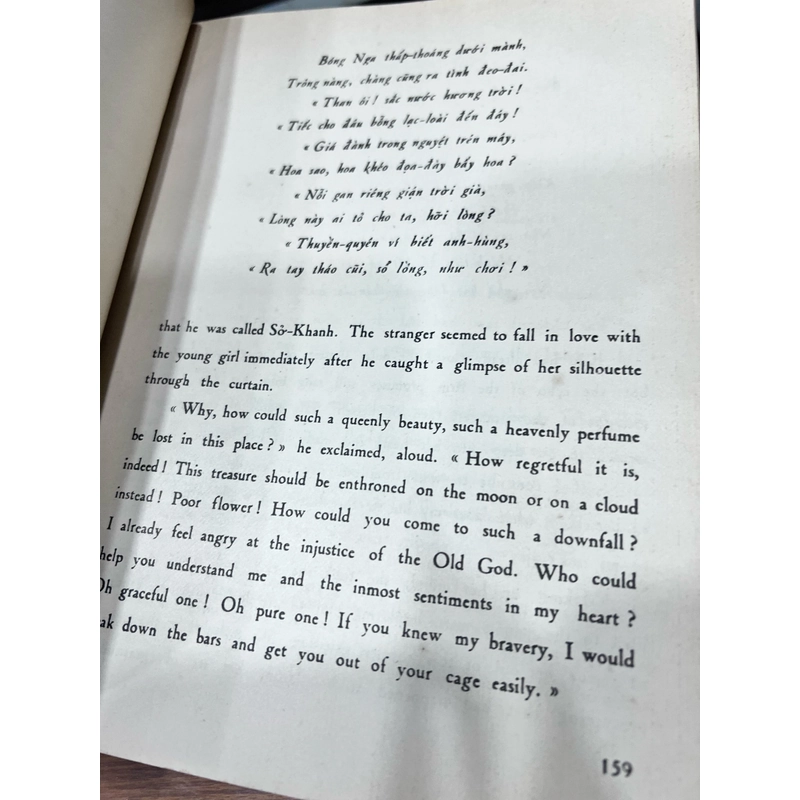 Bóng Nga thấp-thoáng dưới mành,
Trông nàng, chàng cũng ra tình đeo-đai.
« Than ôi ! sắc nước hương trời !
« Tiếc cho đâu bỗng lạc-loài đến đây !
« Giá đành trong nguyệt trên mây,
« Hoa sao, hoa khéo đọa-đày bấy hoa ?
« Nỗi gan riêng giận trời già,
« Lòng này ai tỏ cho ta, hỡi lòng ?
« Thuyền-quyên ví biết anh-hùng,
« Ra tay tháo cũi, sổ lồng, như chơi ! »
that he was called Sở-Khanh. The stranger seemed to fall in love with
the young girl immediately after he caught a glimpse of her silhouette
through the curtain.
« Why, how could such a queenly beauty, such a heavenly perfume
be lost in this place ? » he exclaimed, aloud. « How regretful it is,
indeed ! This treasure should be enthroned on the moon or on a cloud
instead ! Poor flower ! How could you come to such a downfall ?
I already feel angry at the injustice of the Old God. Who could
help you understand me and the inmost sentiments in my heart ?
Oh graceful one ! Oh pure one ! If you knew my bravery, I would
ak down the bars and get you out of your cage easily. »
159